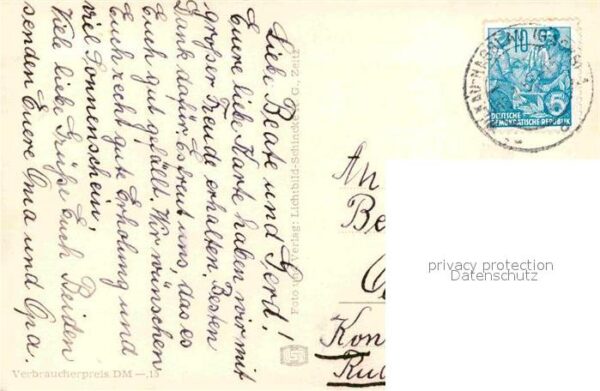 Liebe Beate und Gerd!
Eure liebe Karte haben wir mit
großer Freude erhalten. Besten
Dank dafür. Es freut uns, das es
Euch gut gefällt. Wir wünschen
Euch recht gute Erholung und
viel Sonnenschein,
Viele liebe Grüße Euch Beiden
senden Eure Oma und Opa.
Verbraucherpreis DM —.15
Foto und Verlag: Lichtbild-Schincke K.G. Zeitz
10
5
DEUTSCHE
DEMOKRATISCHE REPUBLIK
An
Be
Kon
Rud
privacy protection
Datenschutz